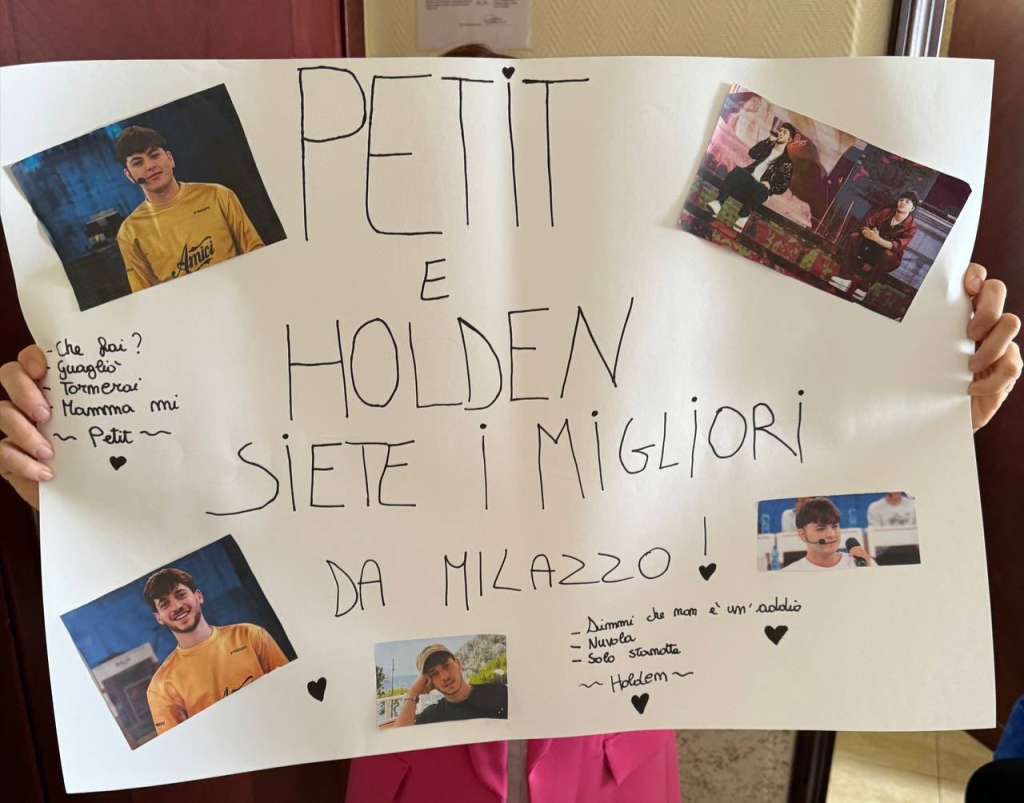 PETIT
E
HOLDEN
SIETE I MIGLIORI
DA MILAZZO!
Amici
- Che fai?
- Guagliò
- Tornerai
- Mamma mi
~ Petit ~
- Dimmi che non è un' addio
- Nuvola
- Solo stanotte
~ Holden ~